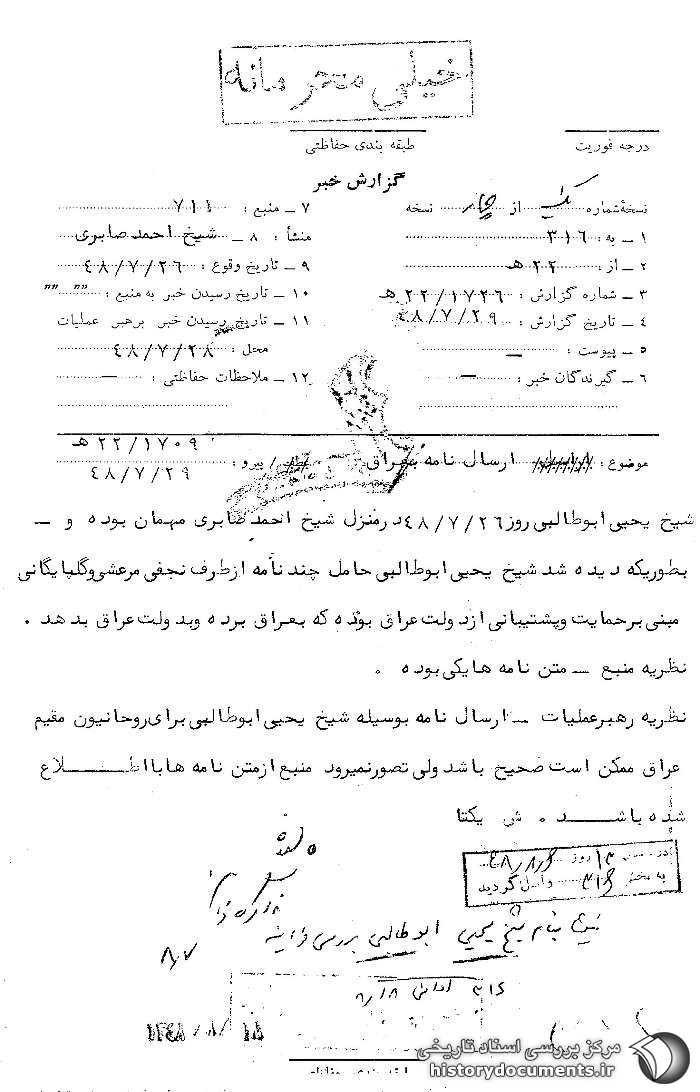 خیلی محرمانه
درجه فوریت
طبقه بندی حفاظتی
گزارش خبر
نسخهٔ شماره یک از چهار نسخه
۱ ـ به : ۳۱۶
۲ ـ از : ۲۲ هـ
۳ ـ شماره گزارش : ۲۲/۱۷۲۶ هـ
۴ ـ تاریخ گزارش : ۴۸/۷/۲۹
۵ ـ پیوست : ـ
۶ ـ گیرندگان خبر : ـ
۷ ـ منبع : ۷۱۱
۸ ـ منشأ : شیخ احمد صابری
۹ ـ تاریخ وقوع : ۴۸/۷/۲۶
۱۰ ـ تاریخ رسیدن خبر به منبع : "" ""
۱۱ ـ تاریخ رسیدن خبر برهبر عملیات
محل : ۴۸/۷/۲۸
۱۲ ـ ملاحظات حفاظتی : ـ
موضوع : ارسال نامه بعراق / پیرو : ۲۲/۱۷۰۹ هـ
۴۸/۷/۲۹
شیخ یحیی ابوطالبی روز ۴۸/۷/۲۶ در منزل شیخ احمد صابری مهمان بوده و ـ
بطوریکه دیده شد شیخ یحیی ابوطالبی حامل چند نامه از طرف نجفی مرعشی و گلپایگانی
مبنی بر حمایت و پشتیبانی از دولت عراق بوده که بعراق برده و بدولت عراق بدهد .
نظریه منبع ـ متن نامه ها یکی بوده .
نظریه رهبر عملیات ـ ارسال نامه بوسیله شیخ یحیی ابوطالبی برای روحانیون مقیم
عراق ممکن است صحیح باشد ولی تصور نمیرود منبع از متن نامه ها با اطــلاع
شده باشــد . ش یکتا
روز ۴۸/۸/۶
به بخش ۳۱۶ واصل گردید
شیخ یحیی ابوطالبی بررسی
۸/۷
۳۱۶
۸/۸
۱۳۴۸/۸/۱۵
مرکز بررسی اسناد تاریخی
historydocuments.ir